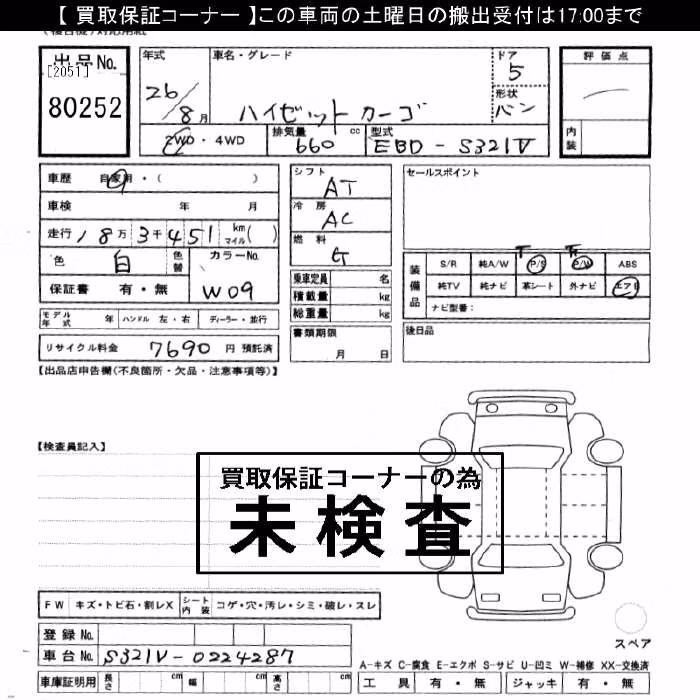 【 買取保証コーナー 】この車両の土曜日の搬出受付は17:00まで
出品No.
[2051]
80252
年式
26/8月
車名・グレード
ハイゼットカーゴ
ドア
5
形状
バン
評価点
内装
2WD・4WD
排気量
660 cc
型式
EBD-S321V
車歴 自家用・( )
車検 年 月
走行 18万3千451 km マイル( )
色 白 色替
カラーNo.
W09
保証書 有・無
モデル年式 年 ハンドル 左・右 ディーラー・並行
リサイクル料金 7690 円 預託済
シフト
AT
冷房
AC
燃料
G
乗車定員 名
積載量 kg
総重量 kg
書類期限
月 日
セールスポイント
装備品
S/R 純A/W P/S P/W ABS
純TV 純ナビ 革シート 外ナビ エアB
ナビ型番:
後日品
【出品店申告欄(不良箇所・欠品・注意事項等)】
【検査員記入】
買取保証コーナーの為
未検査
FW キズ・トビ石・割レX シート内装 コゲ・穴・汚レ・シミ・破レ・スレ
登録No.
車台No. S321V-0224287
車庫証明用 長さ cm 幅 cm 高さ cm
スペア
A-キズ C-腐食 E-エクボ S-サビ U-凹ミ W-補修 XX-交換済
工具 有・無 ジャッキ 有・無